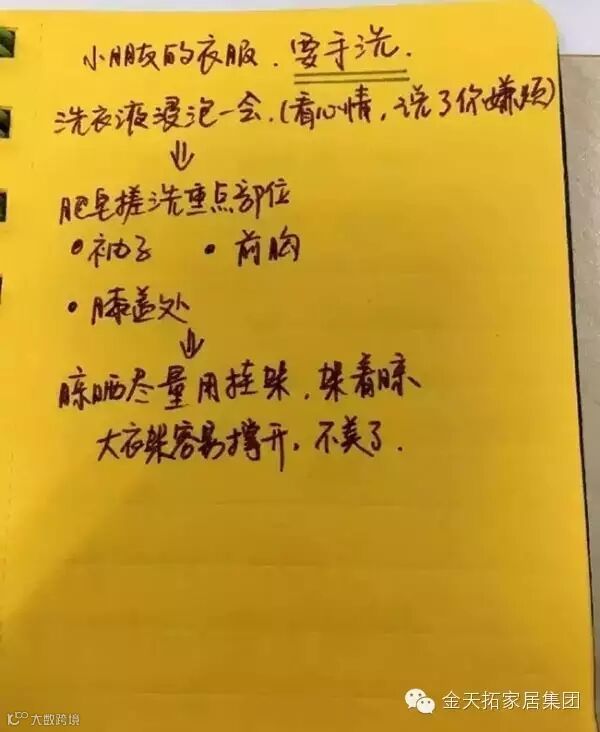 小朋友的衣服.要手洗.
洗衣液浸泡一会.(看心情,洗了你嫌烦)
⇓
肥皂搓洗重点部位
•袖子 •前胸
•膝盖处
⇓
晾晒尽量用挂架.架着晾
大衣架容易撑开,不美了.
金天拓家居集团
大数跨境